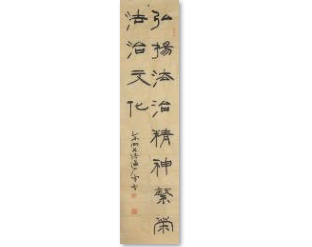 弘揚法治精神繁榮
法治文化